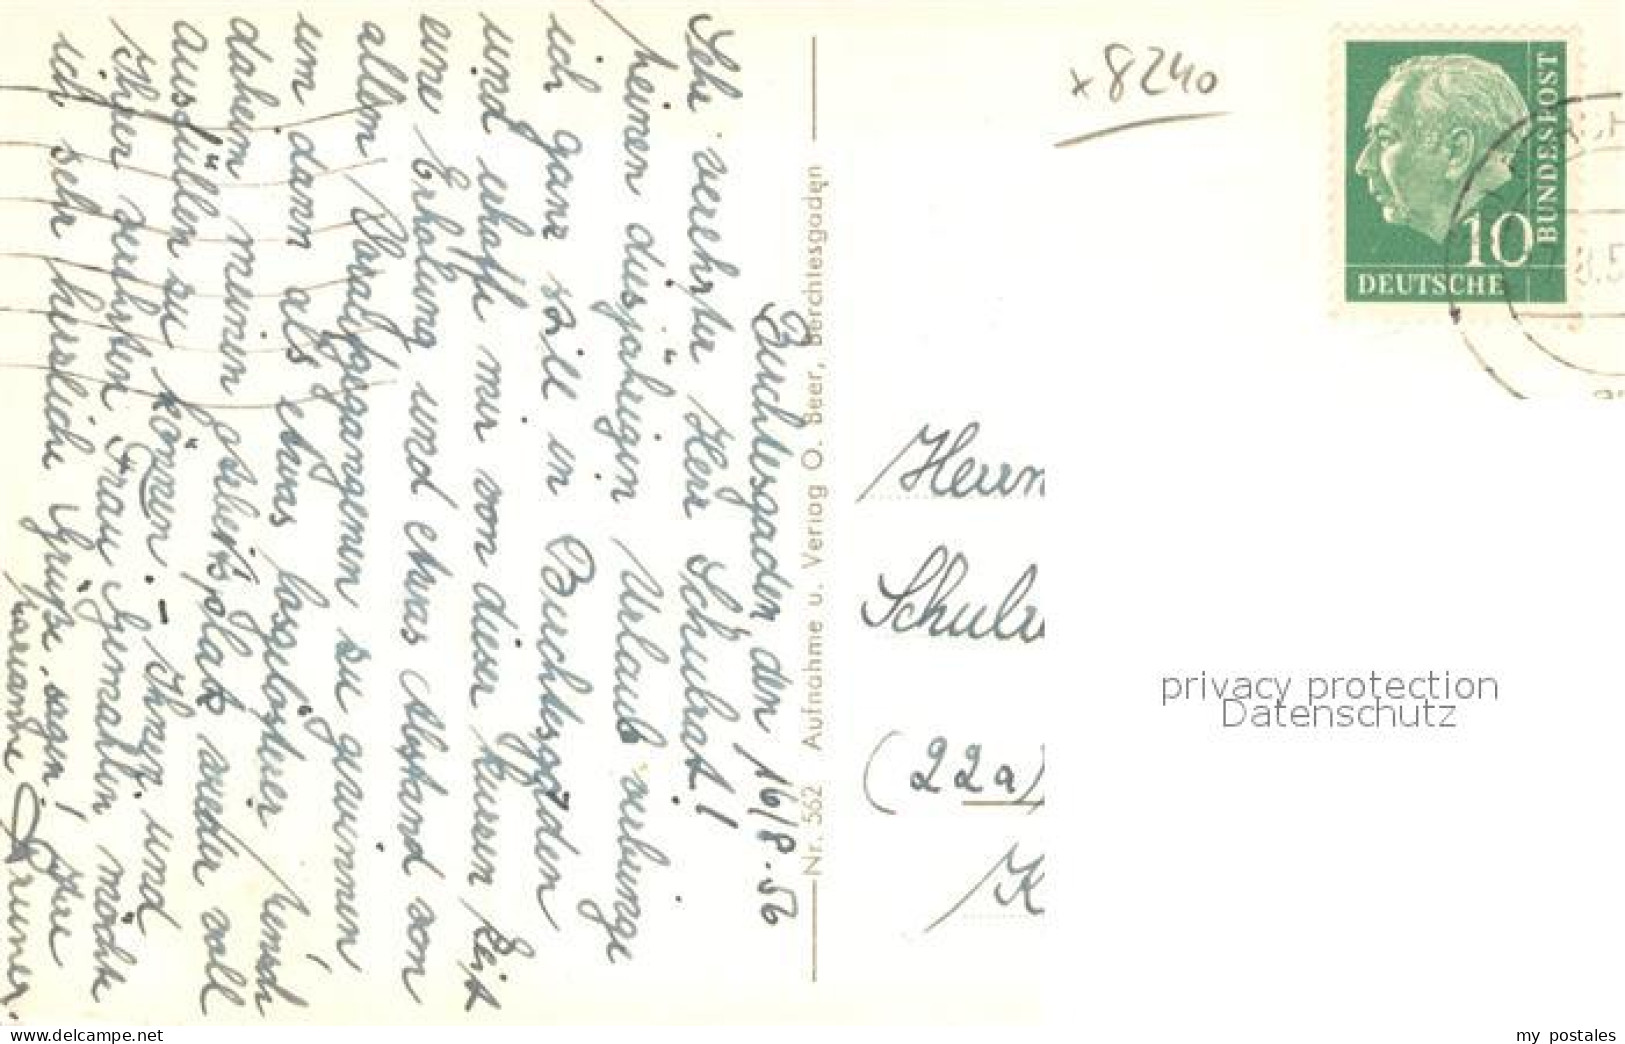 Berchtesgaden, den 16/8.56
Sehr verehrter Herr Schulrat!
Meinen diesjährigen Urlaub verbringe
ich ganz still in Berchtesgaden
und erhoffe mir von dieser kurzen Zeit
eine Erholung und etwas Abstand von
allem Voraufgegangenem zu gewinnen
um dann als etwas losgelöster Mensch
daheim meinen Arbeitsplatz wieder voll
ausfüllen zu können. - Ihnen und
Ihrer verehrten Frau Gemahlin möchte
ich sehr herzliche Grüße sagen! Ihre
Marianne
Nr. 562 Aufnahme u. Verlag O. Beer, Berchtesgaden
x 8240
DEUTSCHE
BUNDESPOST
10
Herrn
(22a)
K
privacy protection
Datenschutz
www.delcampe.net
my_postales